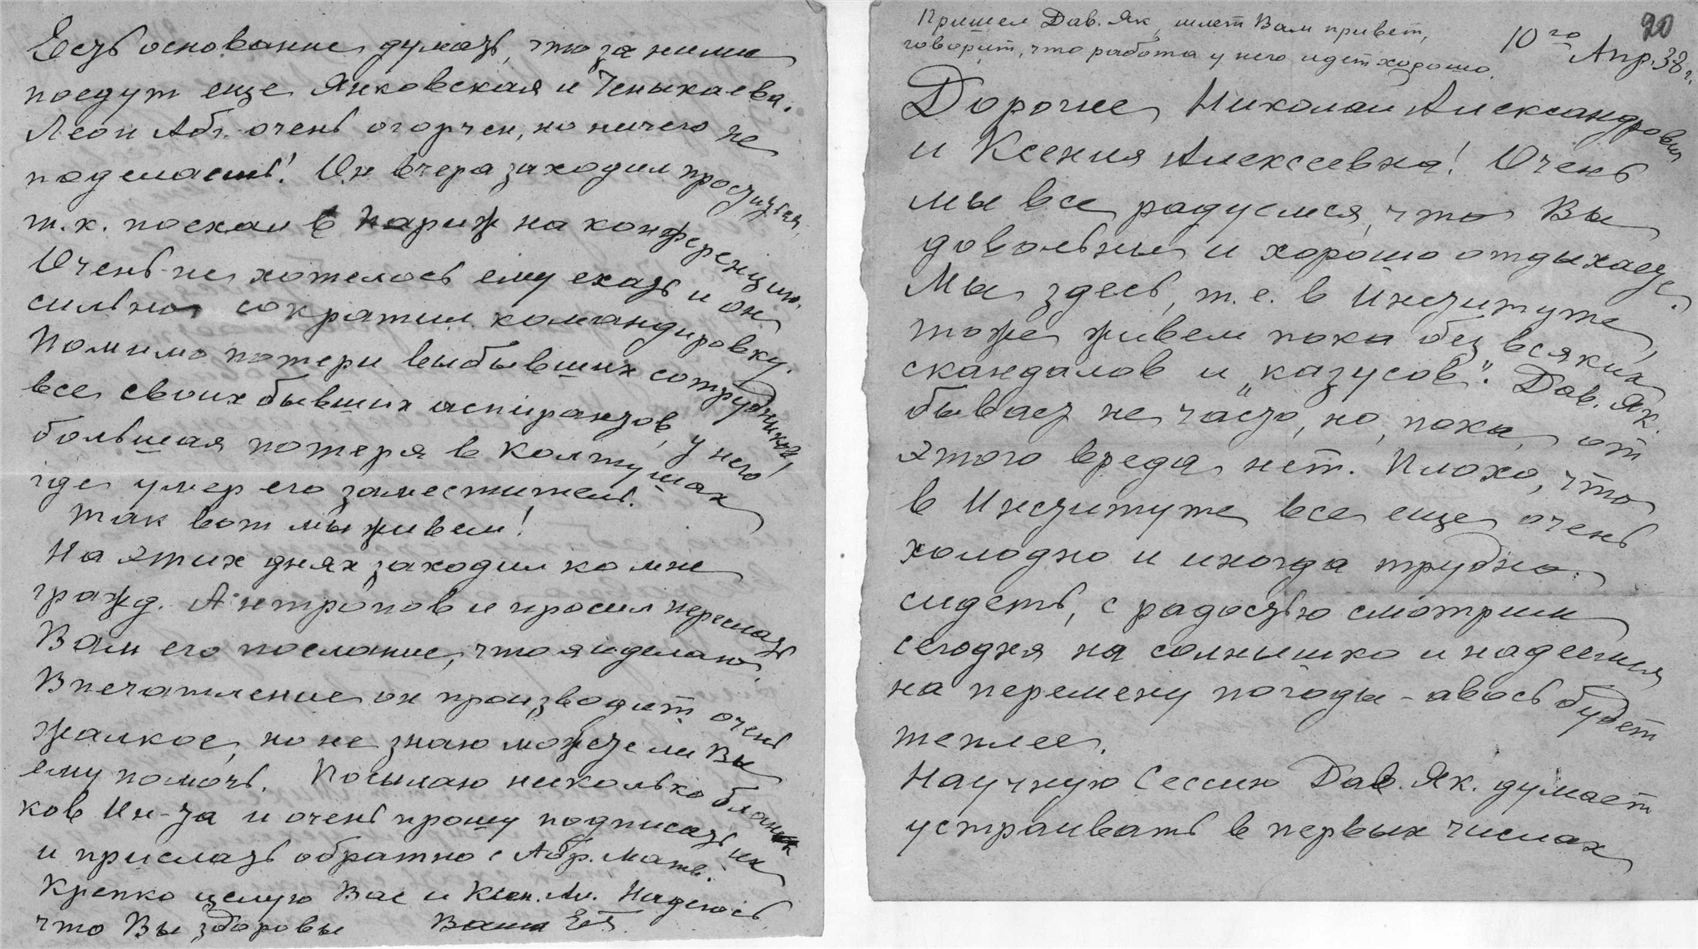 Есть основание думать, что за ними
поедут еще Янковская и Ченыкаева.
Леон Абг. очень огорчен, но ничего не
поделаешь! Он вчера заходил проститься,
т.к. поехал в Париж на конференцию.
Очень не хотелось ему ехать и он
сильно сократил командировку.
Помимо потери выбывших сотрудников,
все своих бывших аспирантов, у него
большая потеря в Колтушах
где умер его заместитель.
Так вот мы живем!
На этих днях заходил ко мне
гражд. Антропов и просил переслать
Вам его послание, что я и делаю.
Впечатление он производит очень
жалкое, но не знаю можете ли Вы
ему помочь. Посылаю несколько блан-
ков Ин-та и очень прошу подписать их
и прислать обратно с Абр. Матв.
Крепко целую Вас и Ксен. Ал. Надеюсь
что Вы здоровы Ваша
Пришел Дав. Як., шлет Вам привет,
говорит, что работа у него идет хорошо.
20
10го Апр. 38 г.
Дорогие Николай Александрович
и Ксения Алексеевна! Очень
мы все радуемся, что Вы
довольны и хорошо отдыхаете.
Мы здесь, т.е. в Институте,
тоже живем пока без всяких
скандалов и „казусов". Дав. Як.
бывает не часто, но, пока, от
этого вреда нет. Плохо, что
в Институте все еще очень
холодно и иногда трудно
сидеть, с радостью смотрим
сегодня на солнышко и надеемся
на перемену погоды - авось будет
теплее.
Научную Сессию Дав. Як. думает
устраивать в первых числах